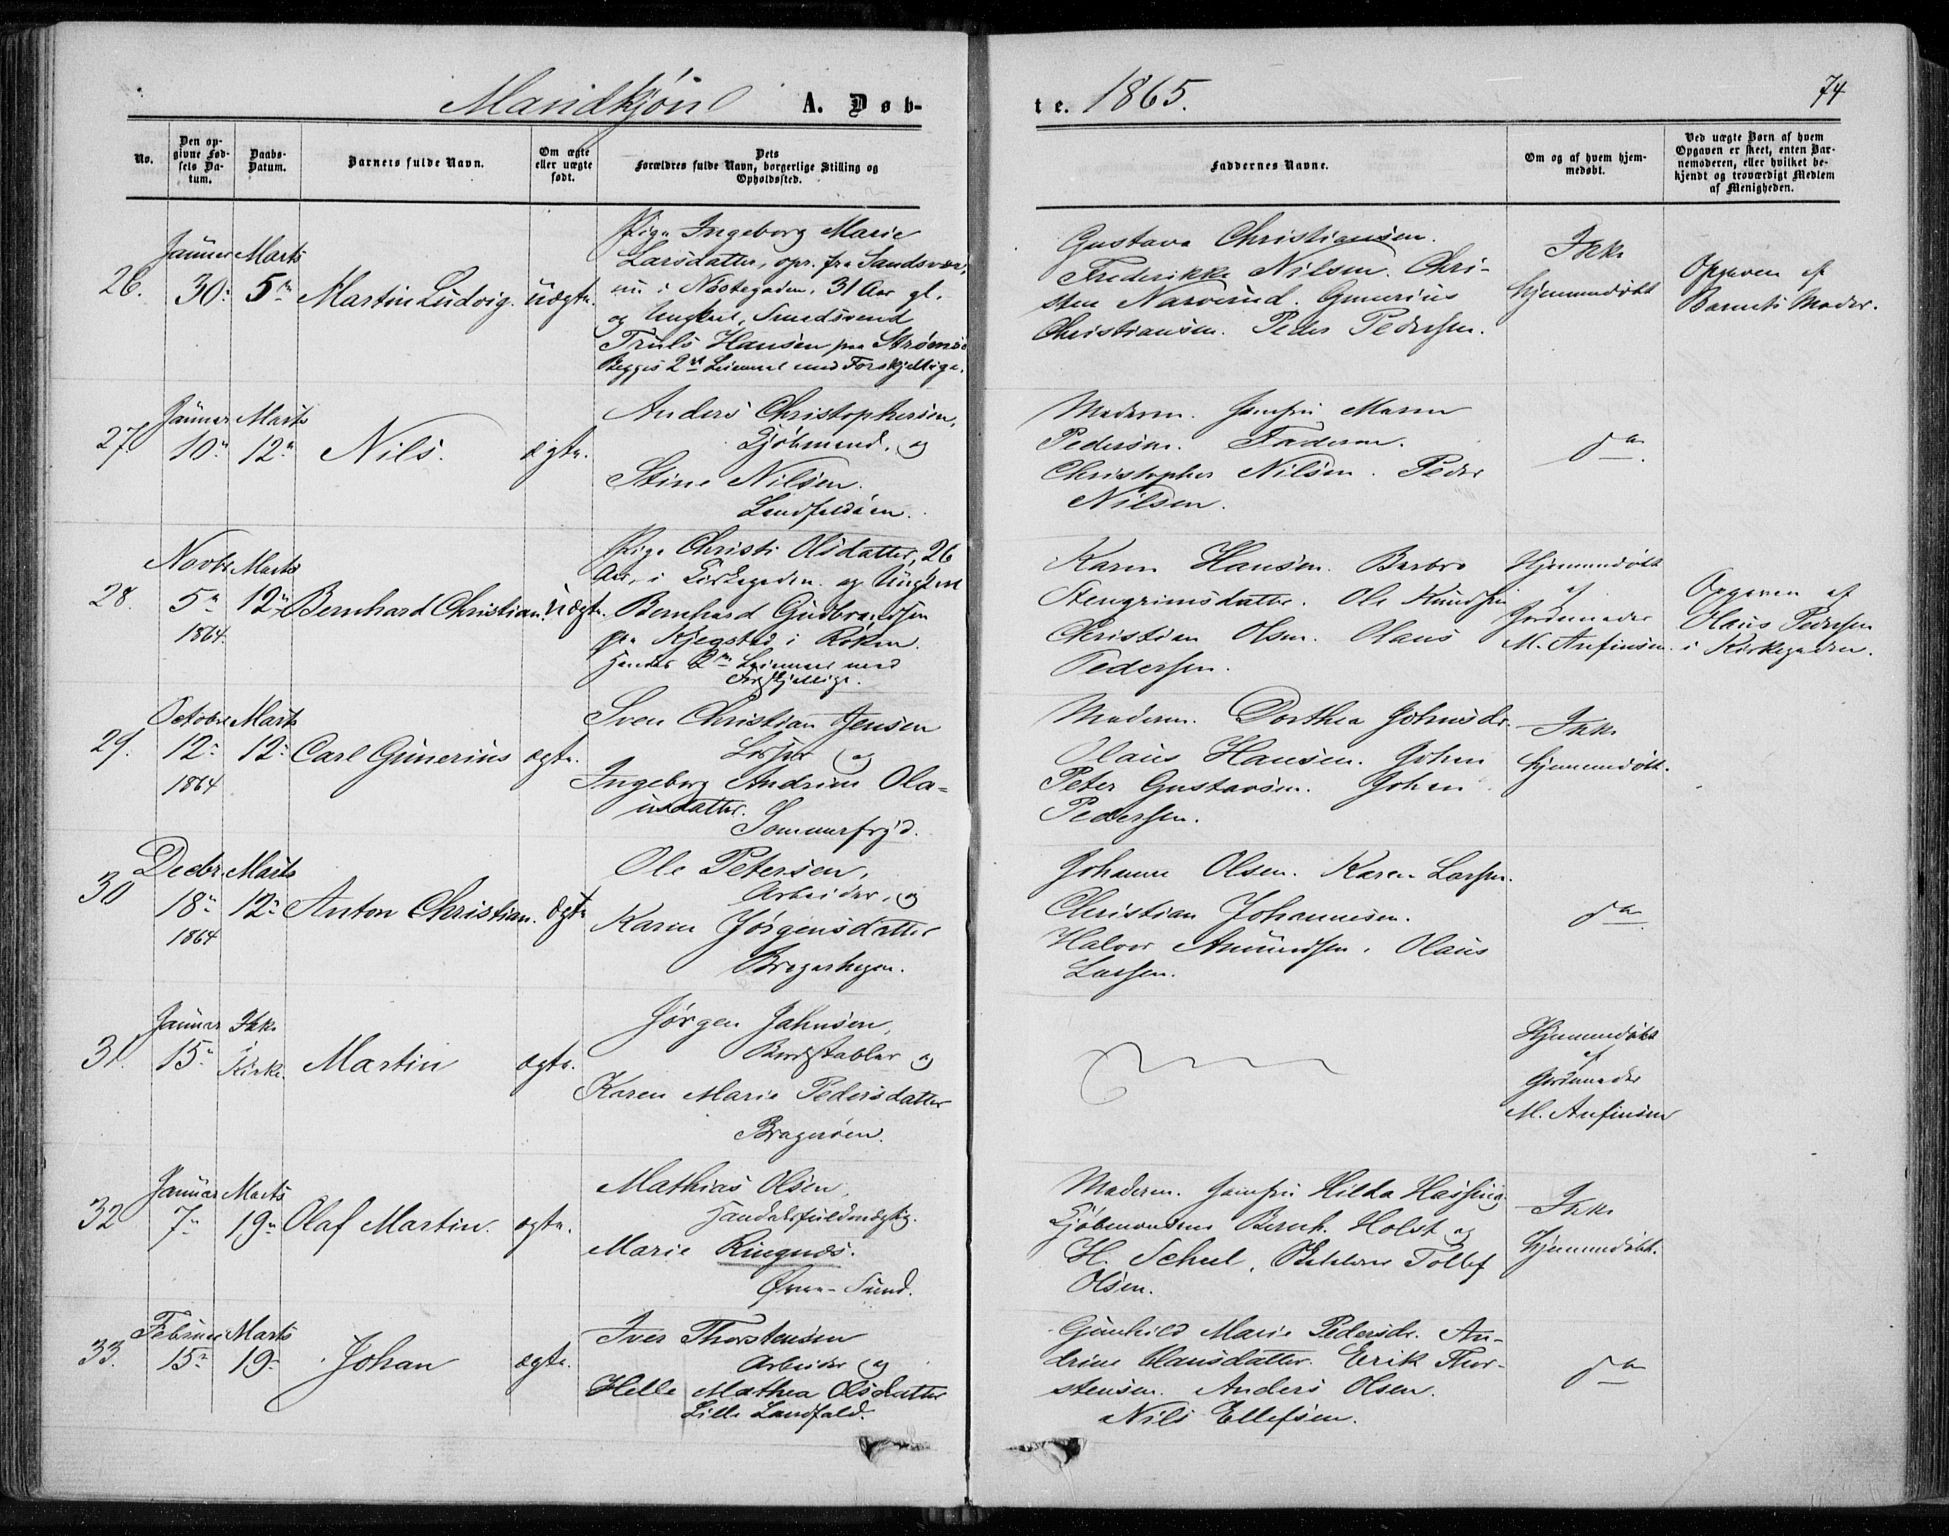 Mandkjøn A. Døb-
te. 1865. 74
No.
Den op-
givne Fød-
sels Da-
tum.
Daabs-
Datum.
Barnets fulde Navn.
Om ægte
eller uægte
født.
Dets
Forældres fulde Navn, borgerlige Stilling og
Opholdssted.
Faddernes Navne.
Om og af hvem hjem-
medøbt.
Ved uægte Børn af hvem
Opgaven er skeet, enten Bar-
nemoderen, eller hvilket be-
kjendt og troværdigt Medlem
af Menigheden.
26.
Januar
30
Marts
5
Martin Ludvig.
uægte.
Pige Ingeborg Marie
Larsdatter, opr. fra Sandsvær,
nu i Næstegaden, 31 Aar gl.
og Ungkarl, Smedsvend
Truls Hansen paa Strømsø
Begges 2 Leiermaal med Forskjellige.
Gustava Christiansen.
Frederikke Nilsen. Chri-
sten Narverud. Gunerius
Christiansen. Peder Pedersen.
Ikke
hjemmedøbt
Opgaven af
Barnets Moder.
27
Januar
10
Marts
12
Nils.
ægte.
Anders Christophersen,
Kjøbmand, og
Stine Nilsen.
Landfaldøen.
Moderen. Jomfru Maren
Pedersen. Faderen.
Christopher Nilsen. Peder
Nilsen.
do
28.
Novbr
5
1864.
Marts
12
Bernhard Christian.
uægte.
Pige Christi Olsdatter, 26
Aar, i Kirkegaden og Ungkarl
Bernhard Gudbrandsen
fra Kjegstad i Røken.
hendes 2 Leiermaal med
Forskjellige.
Karen Hansen. Barbro
Stengrimsdatter. Ole Knudsen
Christian Olsen. Olaus
Pedersen.
Hjemmedøbt
af
Jordemoder
M. Anfinsen.
Opgaven af
Olaus Pedersen
i Kirkegaden.
29.
Octobr
12
1864
Marts
12
Carl Gunerius
ægte.
Sven Christian Jensen
og
Ingeborg Andrine Ola-
usdatter.
Sommerfryd.
Moderen. Dorthea Johnsdr.
Olaus Hansen. Johan
Peter Gustavsen. Johan
Pedersen.
Ikke
hjemmedøbt.
30
Decbr
18
1864
Marts
12
Anton Christian.
ægte
Ole Petersen,
Arbeider, og
Karen Jørgensdatter
Bragerhagen.
Johanne Olsen. Karen Larsen.
Christian Johannesen.
Halvor Amundsen. Olaus
Larsen.
do
31.
Januar
15
Ikke
i
Kirke.
Martin
ægte.
Jørgen Jahnsen,
Bordstabler og
Karen Marie Pedersdatter
Bragerøen.
Hjemmedøbt
af
Jordemoder
M. Anfinsen
32
Januar
7
Marts
19
Olaf Martin.
ægte.
Mathias Olsen,
Handelsfuldmægtig.
Marie Ringnæs.
Øvre-Sund.
Moderen. Jomfru Hilda Hassing
Kjøbmændene Bernh. Holst og
H. Scheel, Tollef
Olsen.
Ikke
hjemmedøbt.
33.
Februar
15
Marts
19
Johan
ægte.
Iver Thorstensen
Arbeider og
Helle Mathea Olsdatter
Lille Landfald.
Gunhild Marie Pedersdr. An-
drine Hansdatter. Erik Thor-
stensen. Anders Olsen.
Nils Ellefsen.
do